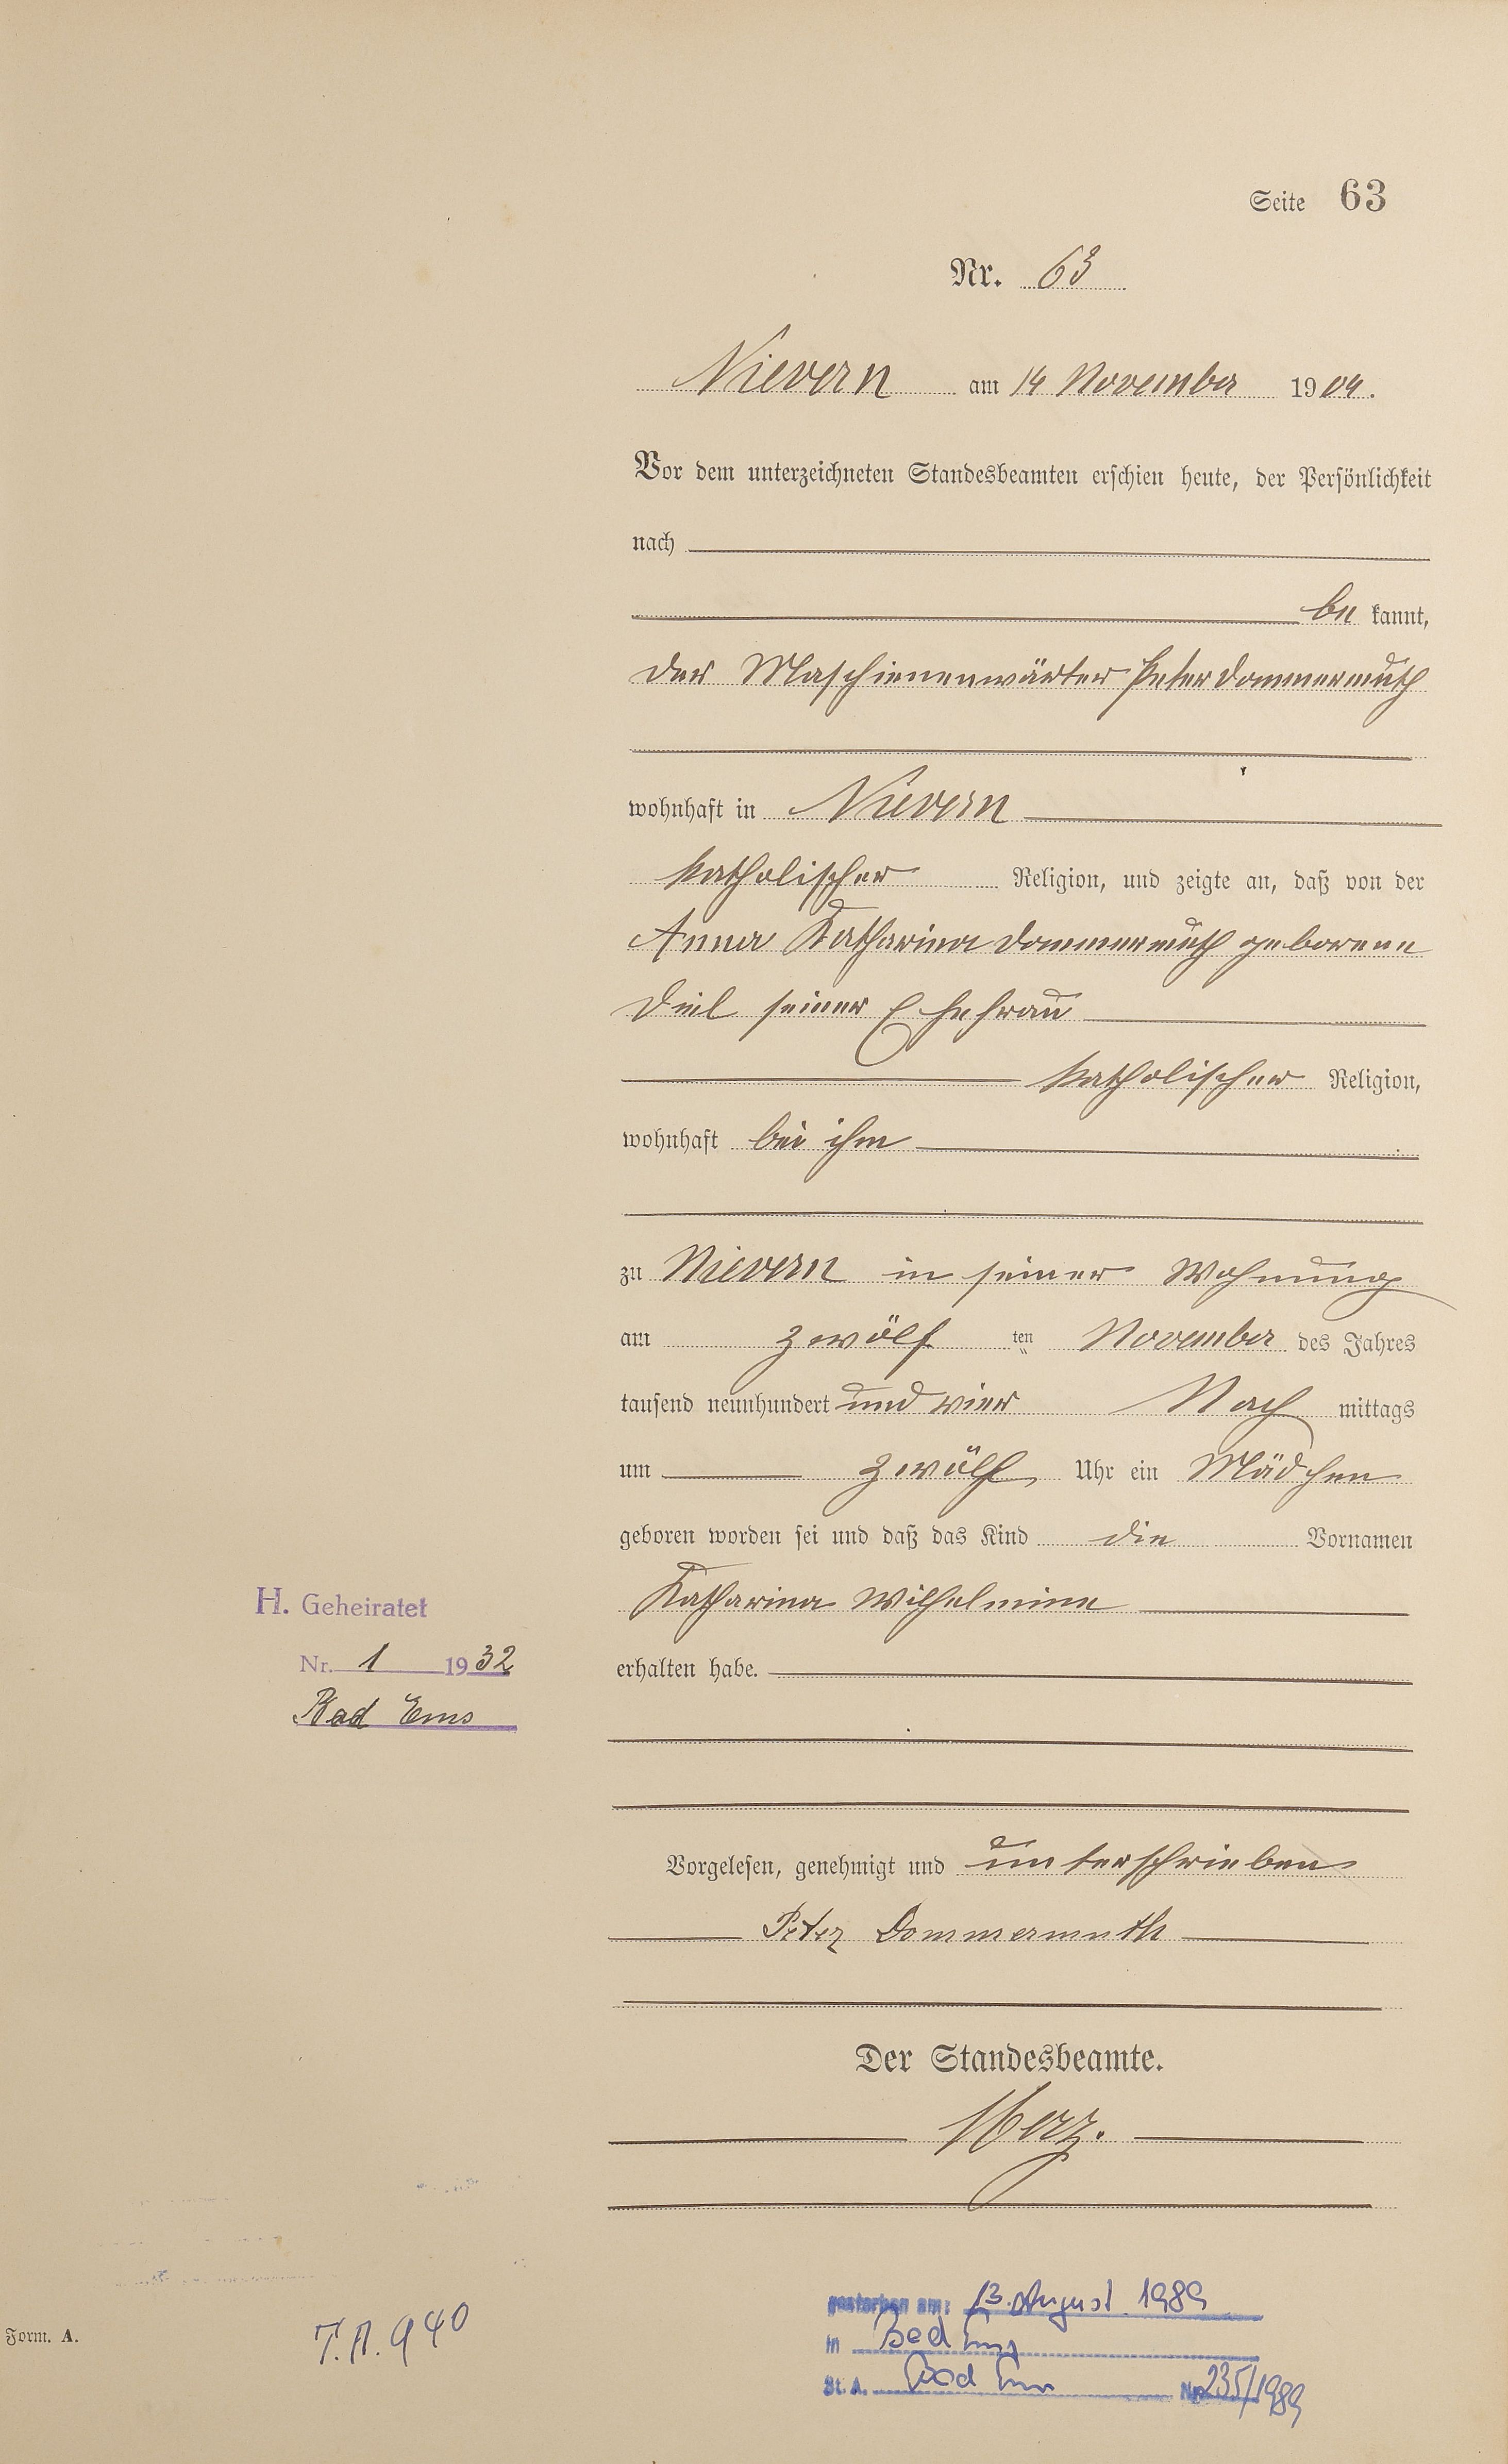 Seite 63
Nr. 63
Nievern am 14 November 1904.
Vor dem unterzeichneten Standesbeamten erschien heute, der Persönlichkeit
nach
be kannt,
der Maschienenwärter Peter Dommermuth
wohnhaft in Nievern
katholischer Religion, und zeigte an, daß von der
Anna Katharina Dommermuth geborene
Diel seiner Ehefrau
katholischer Religion,
wohnhaft bei ihm
zu Nievern in seiner Wohnung
am zwölf ten November des Jahres
tausend neunhundert und vier Nach mittags
um zwölf Uhr ein Mädchen
geboren worden sei und daß das Kind die Vornamen
Katharina Wilhelmine
erhalten habe.
H. Geheiratet
Nr. 1 1932
Bad Ems
Vorgelesen, genehmigt und unterschrieben
Peter Dommermuth
Der Standesbeamte.
Herz.
gestorben am: 13. August 1989
in Bad Ems
St. A. Bad Ems Nr. 235/1989
Form. A.
T.A. 940